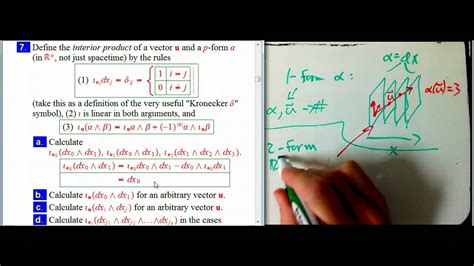 7. Define the interior product of a vector u and a p-form α
(in ℝⁿ, not just spacetime) by the rules
(1) dxⱼ = δᵢⱼ = { 1 i = j
0 i ≠ j
(take this as a definition of the very useful "Kronecker δ"
symbol), (2) ι is linear in both arguments, and
(3) ιᵤ(α ∧ β) = ιᵤα ∧ β + (−1) α ∧ ιᵤβ
a. Calculate
(dx₀ ∧ dx₁), (dx₀ ∧ dx₁), (dx₁ ∧ dx₂ ∧ dx₃).
(dx₀ ∧ dx₁) = dx₀ ∧ dx₁ − dx₀ ∧ dx₁
= dx₀
b. Calculate ιᵤ(dx₀ ∧ dx₁) for an arbitrary vector u.
c. Calculate ιᵤ(dxᵢ ∧ dxⱼ) for an arbitrary vector u.
d. Calculate in the cases
α = dx
1-form α:
α, u → #
α(u) = 3
2-form
x